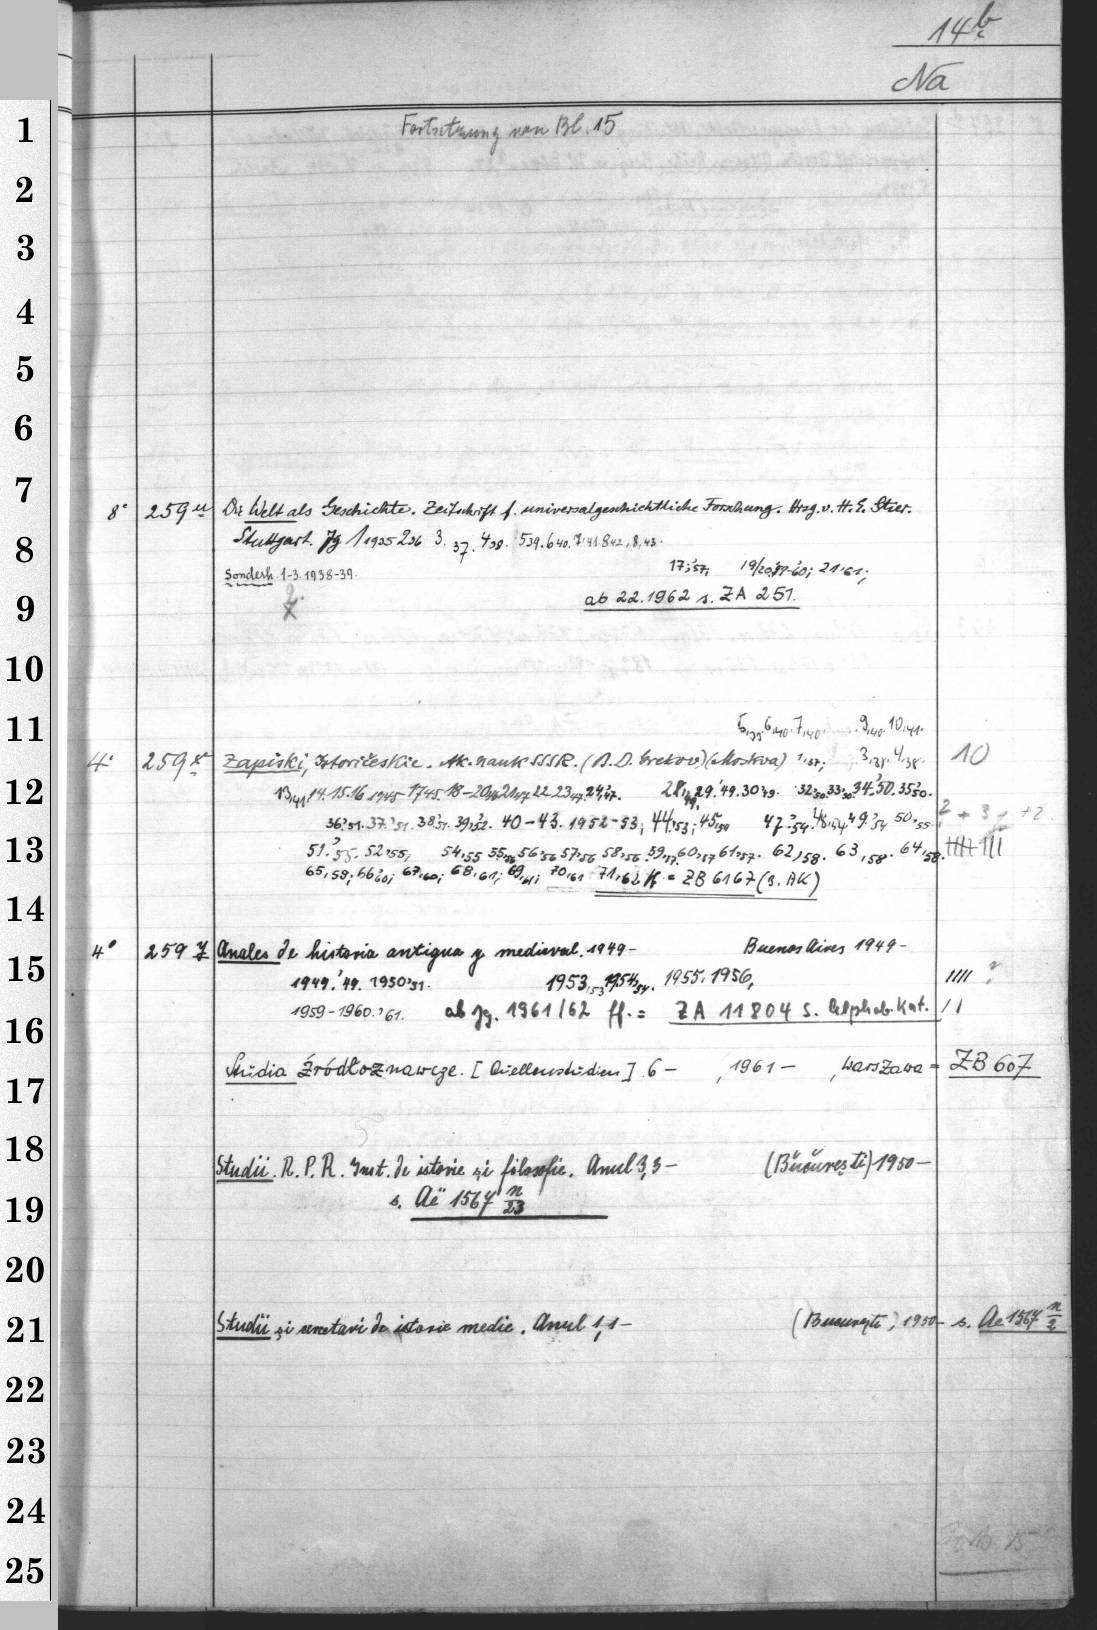 14b
Na
1
Fortsetzung von Bl. 15
2
3
4
5
6
7
8° 259 u Die Welt als Geschichte. Zeitschrift f. universalgeschichtliche Forschung. Hrsg. v. H. E. Stier.
8
Stuttgart. Jg 1 1935 2 36 3. 37. 4 38. 5 39. 6 40. 7 41 8 42, 8, 43.
17,'57; 19/20,'59-'60; 21'61;
Sonderh. 1-3. 1938-39.
9
ab 22.1962 s. ZA 251.
10
11
5,39 6,40 7,40 9,40 10,41.
4° 259 x Zapiski, Istoričeskie. Ak. nauk SSSR. (B. D. Grekov) (Moskva) 1,37; 3,38. 4,38. 10
12
13,41 14. 15. 16 1945 22. 23,47 24,'47. 28,49 29'49. 30'49. 32'50 33'50 34'50. 35'50.
2 + 3 + +2
36'51. 37'51 38'51. 39'52. 40-43. 1952-53; 44,'53; 45,'54 47'54 48'54 49'54 50,'55
13
51.'55. 52'55, 54,55 55,56 56'56 57'56 58,'56. 59,'57 60,'57 61,'57. 62,58. 63,58. 64,58.
65,59; 66'60; 67,'60; 68,'61; 69,'61; 70,'61 71,'62 ff. = ZB 6167 (s. AK)
14
4° 259 y Anales de historia antigua y medieval. 1949- Buenos Aires 1949-
15
1949.'49. 1950'51. 1953,'53 1954,'54. 1955, 1956, ////
1959-1960.'61. ab Jg. 1961/62 ff. = ZA 11804 s. Alphab. Kat. //
16
Studia źródłoznawcze. [Quellenstudien] 6- , 1961- , Warszawa = ZB 607
17
18
Studii. R. P. R. Inst. de istorie și filosofie. Anul 3,3- (București) 1950-
19
s. Aë 1567 n/23
20
21
Studii și cercetari de istorie medie. Anul 1,1- (București) 1950- s. Ae 1567 n/2
22
23
24
25